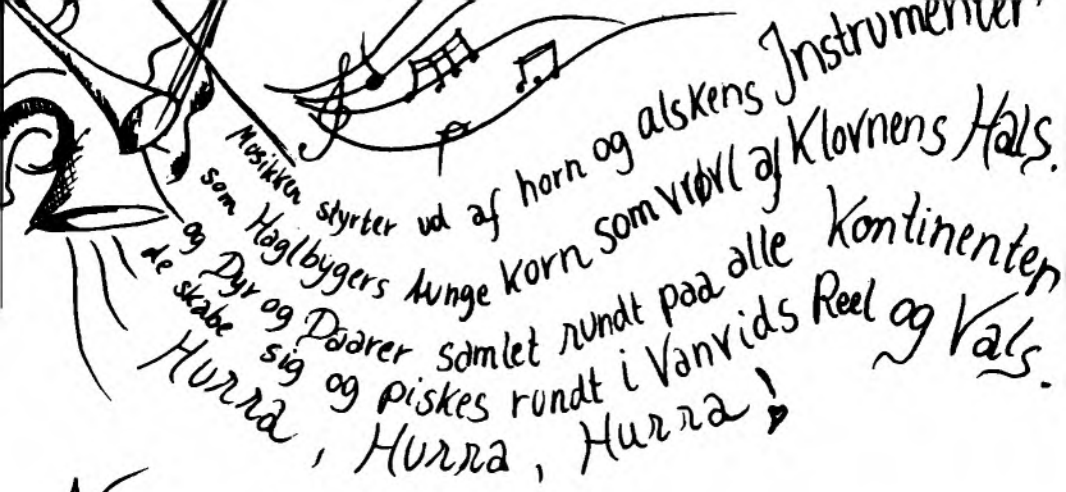 Mosikken styrter ud af horn og alskens Instrumenter
som Haglbygers tunge korn som vrøvl af Klovnens Hals.
og Dyr og Daarer samlet rundt paa alle Kontinenter
de skabe sig og piskes rundt i Vanvids Reel og Vals.
Hurra, Hurra, Hurra!